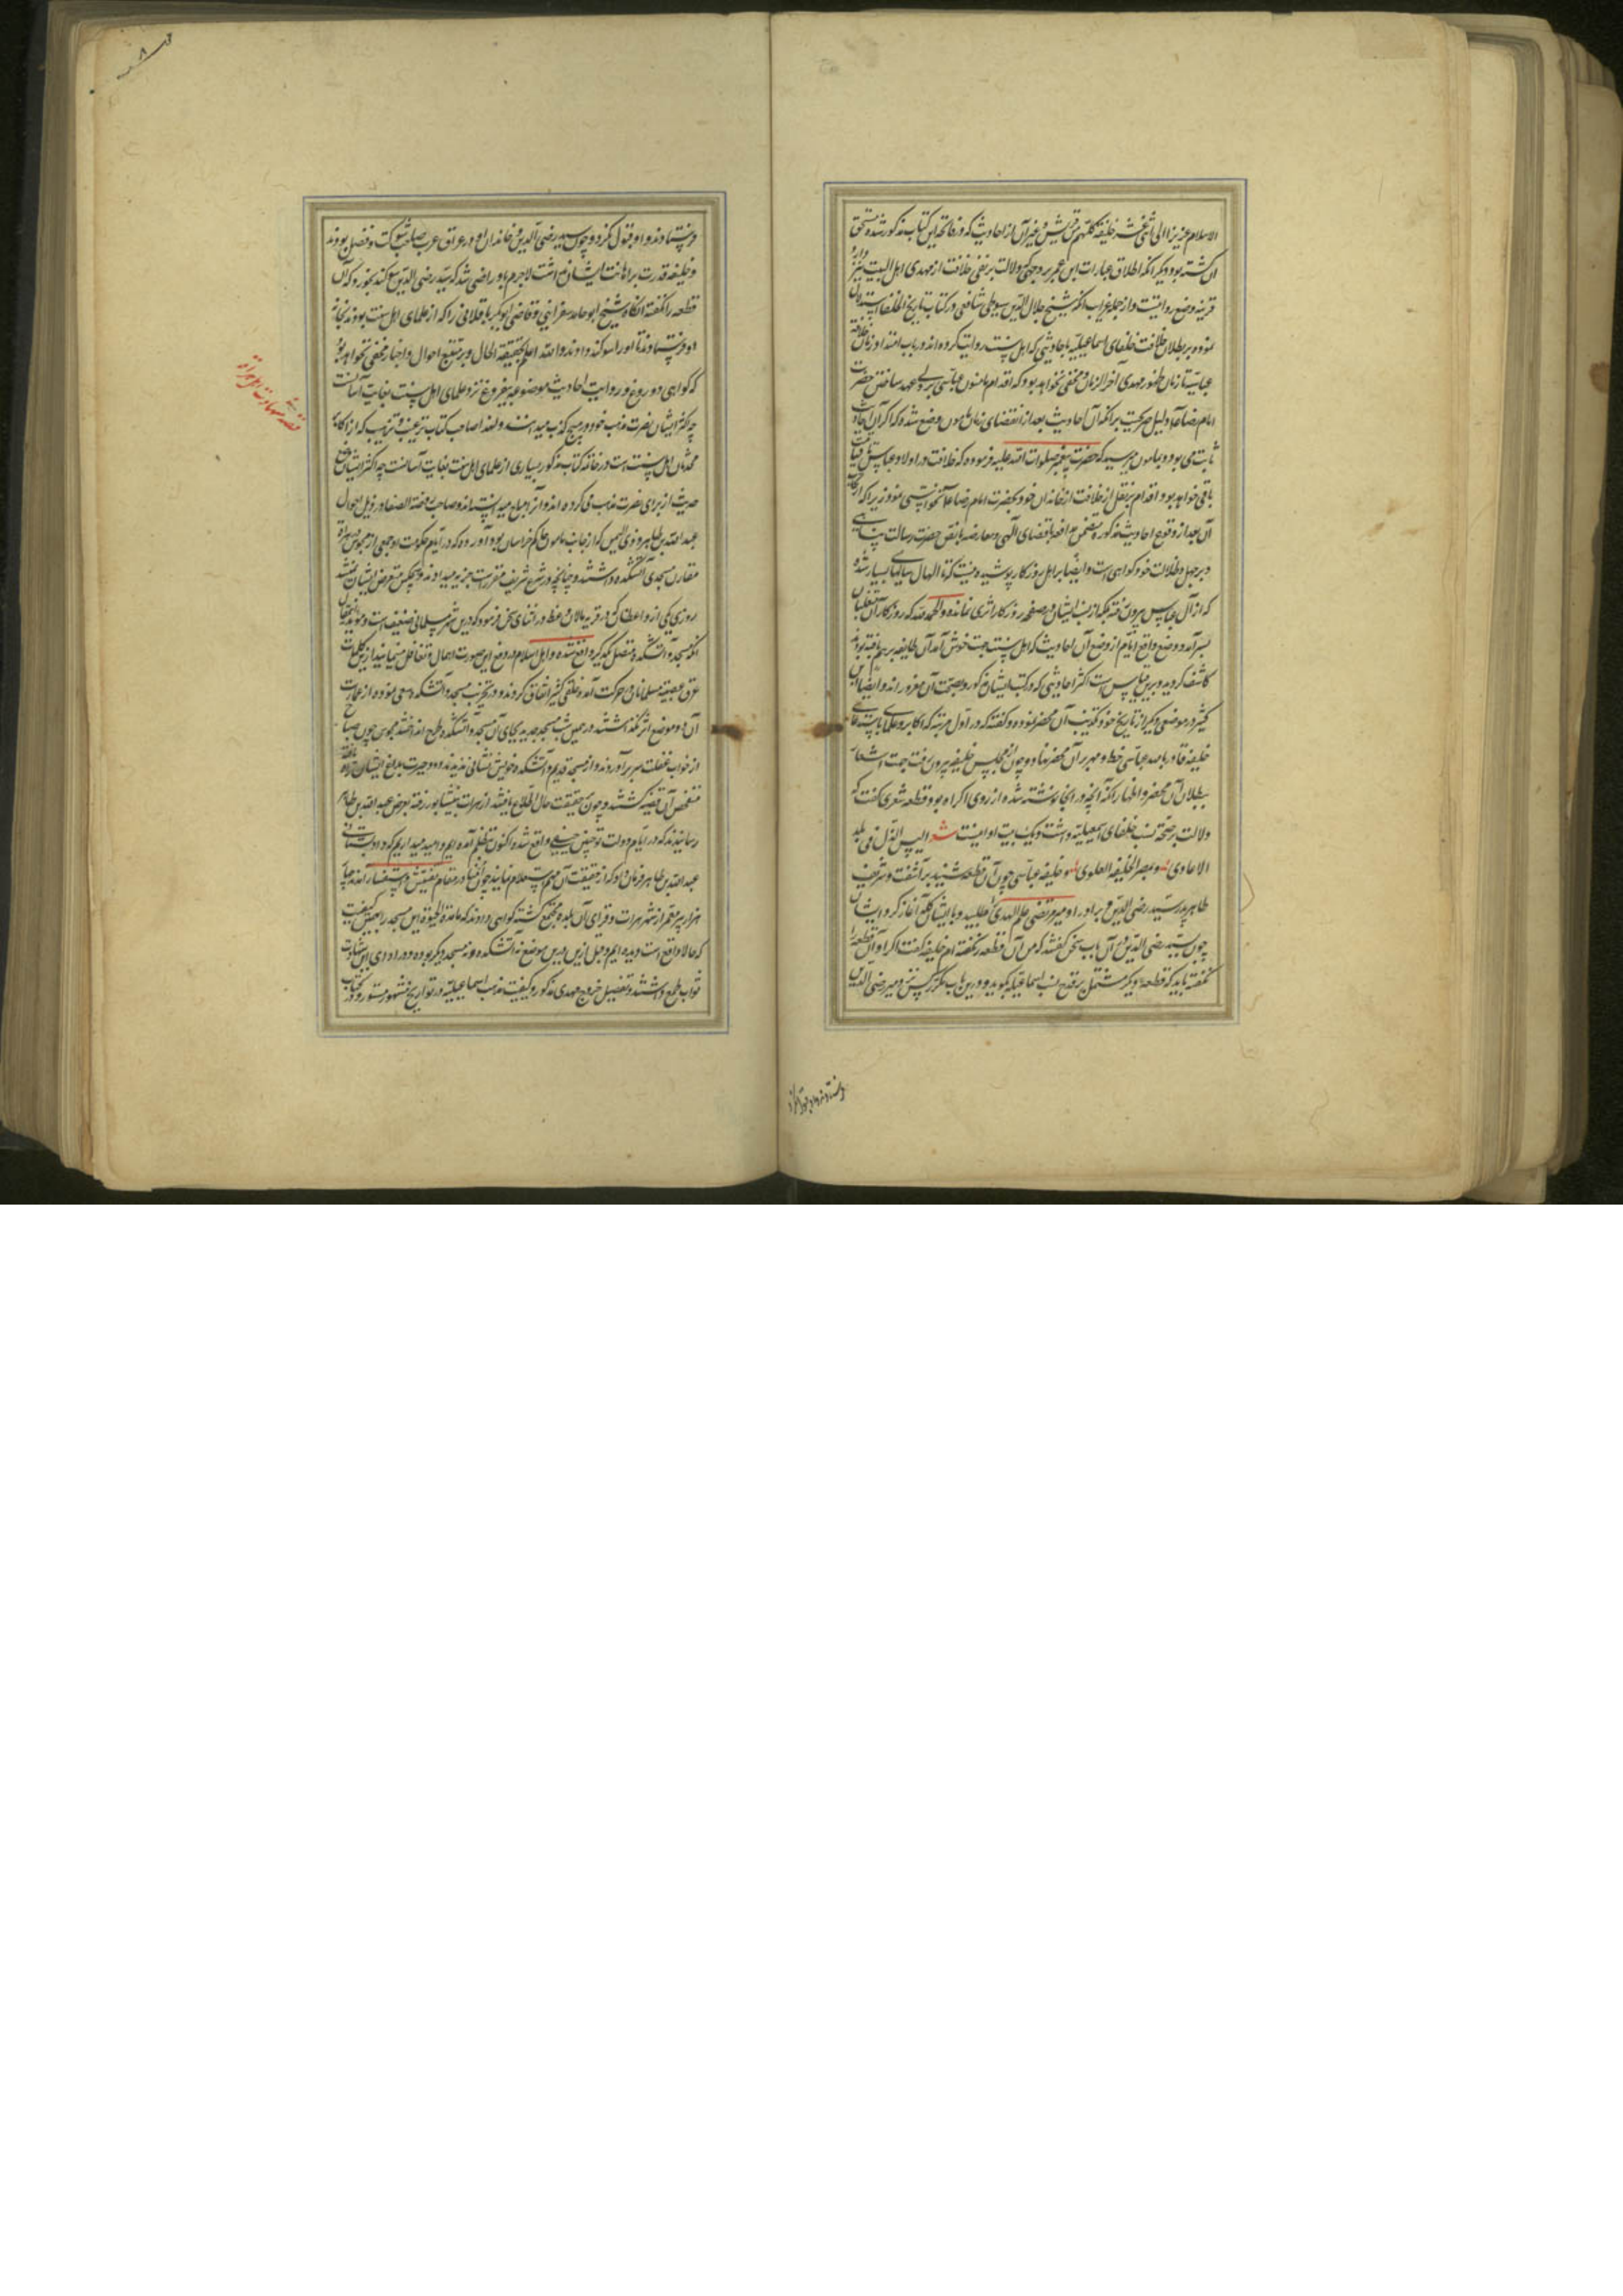 الاسلام عزیزا الی اثنی عشر خلیفة کلهم من قریش و غیر آن از احادیث که در فاتحه این کتاب مذکور شده مستحق
آن گشته بود و دیگر آنکه اطلاق عبارات ابن عمر بر وجهی که دلالت بر نفی خلافت از مهدی اهل البیت نیز دارد
قرینه وضع روایتست و از جمله غرایب آنکه شیخ جلال الدین سیوطی شافعی در کتاب تاریخ الخلفا استدلال
نموده بر بطلان خلافت خلفای اسماعیلیه باحادیثی که اهل سنت روایت کرده‌اند در باب امتداد زمان خلافت
عباسیه تا زمان ظهور مهدی آخر الزمان و مخفی نخواهد بود که اقدام مامون عباسی بر ولی عهد ساختن حضرت
امام رضا دلیل صریحست بر آنکه آن احادیث بعد از انقضای زمان مامون وضع شده که اگر آن احادیث
ثابت می بود و بمامون میرسید که حضرت پیغمبر صلوات الله علیه فرموده که خلافت در اولاد عباس تا قیامت
باقی خواهد بود اقدام بنقل از خلافت از خاندان خود بحضرت امام رضا نخواستی نمود زیرا که ارتکاب
آن بعد از وقوع احادیث مذکوره متضمن مدافعه با قضای الهی و معارضه با نص حضرت رسالت پناهی
و بر جهل و ضلالت خود گواهی است و ایضا بر اهل روزگار پوشیده نیست که تا الحال سالهای بسیار شده
که از آل عباس بیرون رفته بلکه از نسب ایشان در صفحه روزگار اثری نمانده و الحمد لله که روزگار آن متغلبان
بسر آمد و وضع واقع ایام از وضع آن احادیث که اهل سنت جهت خوش آمد آن طایفه بر هم بافته بودند
کاشف گردید و برین قیاس است اکثر احادیثی که در کتب ایشان مذکور و بصحت آن مغرور اند و ایضا ابن
کثیر در موضعی دیگر از تاریخ خود تکذیب آن محضر نموده و گفته که در اول مرتبه که اکابر و علما باستدعای
خلیفه قادر بالله عباسی خط و مهر بر آن محضر نهادند و چون از مجلس خلیفه بیرون رفت جهت اشعار
ببطلان آن محضر و اظهار آنکه آنچه در آنجا نوشته شده از روی اکراه بود و قطعه شعری گفت که
دلالت بر صحت نسب خلفای اسمعیلیه داشت و یک بیت او اینست شعر الیس الذل فی بلد
الاعادی و بمصر الخلیفة العلوی و خلیفه عباسی چون آن قطعه شنید بر آشفت و شریف
طاهر پدر سید رضی الدین و برادر او میر مرتضی علم الهدی را طلبید و با ایشان گله آغاز کرد و ایشان
چون سید رضی الدین از آن باب سخن گفتند که من آن قطعه نگفته ام خلیفه گفت اگر او آن قطعه را
نگفته باید که قطعه دیگر مشتمل بر قدح نسب اسماعیلیه بگوید و درین باب مکرر کس نزد میر رضی الدین
فرستادند و او قبول نکرد
فرستادند و او قبول نکرد و چون سید رضی الدین و خاندان او در عراق عرب صاحب شوکت و فضل بودند
و خلیفه قدرت بر اهانت ایشان نداشت لاجرم باو راضی شد که سید رضی الدین سوگند بخورد که آن
قطعه را نگفته آنگاه شیخ ابو حامد اسفراینی و قاضی ابوبکر باقلانی را که از علمای اهل سنت بودند بخانه
او فرستادند تا او را سوگند دادند و الله اعلم بحقیقة الحال و بر متتبع احوال و اخبار مخفی نخواهد بود
که گواهی دروغ و روایت احادیث موضوعه بیفروغ نزد علمای اهل سنت بغایت آسانست
چه اکثر ایشان نصرت مذهب خود در مسیح کذب میدانستند و لهذا صاحب کتاب ترغیب و ترهیب که از اکابر
محدثان اهل سنت است در خاتمه کتاب مذکور بسیاری از علمای اهل سنت بغایت آسانست چه اکثر ایشان وضع
حدیث از برای نصرت مذهب می کرده اند و آنرا مباح میدانسته اند و صاحب روضة الصفا در ذیل احوال
عبدالله بن طاهر ذی الیمینین که از جانب مامون حاکم خراسان بود آورده که در ایام حکومت او جمعی از مجوس هراة
مقارن مسجدی آتشکده داشتند و چنانچه در شرع شریف مقررست جزیه میدادند و هیچکس متعرض ایشان نمیشد
روزی یکی از واعظان که در قریه مالان وعظ در اثنای سخن فرمود که درین شهر مسلمانی ضعیف است و مویدا این مقال
آنکه مسجد و آتشکده متصل یکدیگر واقع شده و اهل اسلام در دفع این صورت اهمال و تغافل مینمایند ازین کلمات
عرق عصبیت مسلمانان در حرکت آمد و خلقی کثیر اتفاق کردند و در تخریب مسجد و آتشکده سعی نموده از عمارت
آن دو موضع اثر نگذاشتند و در همین شب مسجد جدید بجای آن مسجد و آتشکده طرح انداختند مجوس چون صباح
از خواب غفلت سر بر آوردند و از مسجد قدیم و آتشکده خویش نشانی ندیدند دود حیرت بدماغ ایشان راه یافته
متفحص آن قضیه گشتند و چون بر حقیقت حال اطلاع یافتند از هرات بنیشابور رفته بعرض عبدالله بن طاهر
رسانیدند که در ایام دولت تو چنین حیفی واقع شده اکنون بتظلم آمده ایم و امید میداریم که داد بستانی
عبدالله بن طاهر فرمان داد که از حقیقت آن مهم استعلام نمایند چون امنا در مقام تفتیش و استفسار آمدند چهار
هزار پیر معمر از شهر هرات و قرای آن بلده مجتمع گشته گواهی دادند که ما مدة الحیوة این مسجد را بهمین کیفیت
که حالا واقع است دیده ایم و قبل ازین درین موضع نه آتشکده و نه مسجد دیگر بوده و در ادای این شهادت
ثواب طمع داشتند و تفصیل خروج مهدی مذکور و کیفیت مذهب اسماعیلیه در تواریخ مشهور مسطور و در کتاب